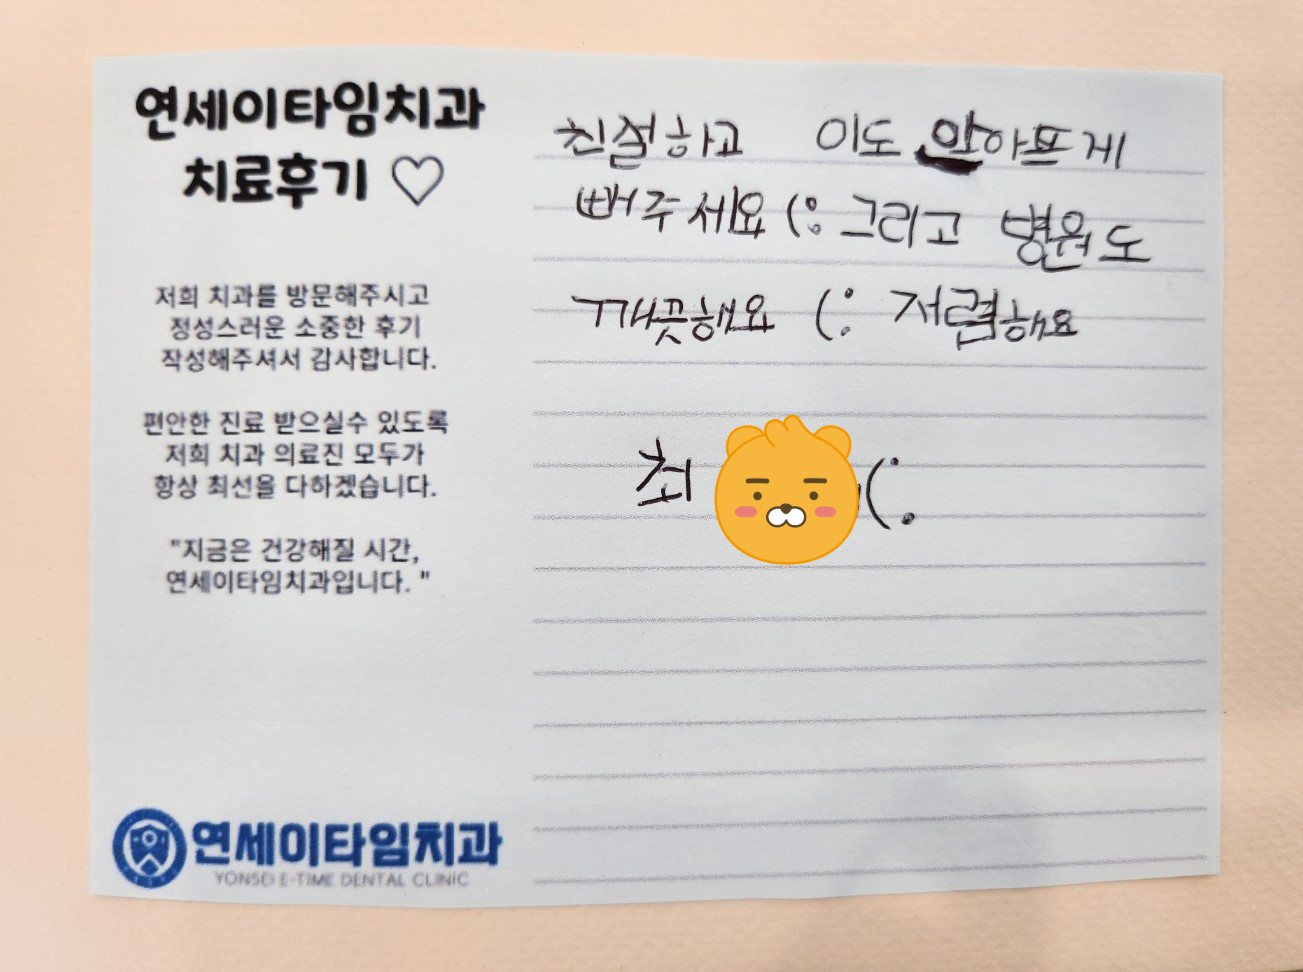 연세이타임치과
치료후기 ♡
저희 치과를 방문해주시고
정성스러운 소중한 후기
작성해주셔서 감사합니다.
편안한 진료 받으실수 있도록
저희 치과 의료진 모두가
항상 최선을 다하겠습니다.
"지금은 건강해질 시간,
연세이타임치과입니다. "
연세이타임치과
YONSEI E-TIME DENTAL CLINIC
친절하고 이도 안아프게
빼주세요 (: 그리고 병원도
깨끗해요 (: 저렴해요
최 (: